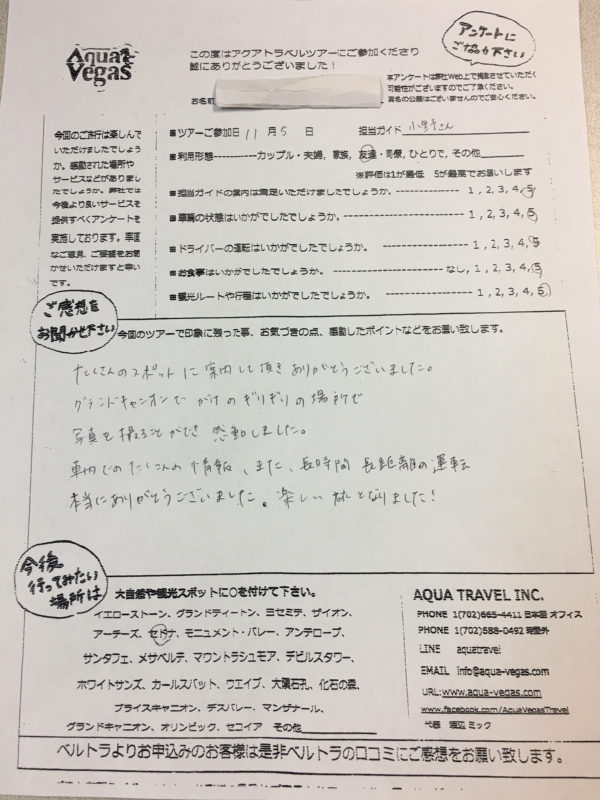 Aqua Vegas
この度はアクアトラベルツアーにご参加くださり
誠にありがとうございました！
アンケートに
ご協力下さい
本アンケートは弊社Web上で掲載させていただく
可能性がございますのでご了承ください。
お名前
実名の公表はございませんのでご安心ください。
今回のご旅行は楽しんで
いただけましたでしょう
か。感動された場所や
サービスなどがありまし
たでしょうか。弊社では
今後より良いサービスを
提供すべくアンケートを
実施しております。率直
なご意見、ご要望をお聞
かせいただけますと幸い
です。
■ツアーご参加日 11 月 5 日 担当ガイド 小野さん
■利用形態-----------カップル・夫婦, 家族, 友達・同僚, ひとりで, その他
※評価は1が最低 5が最高でお願いします
■担当ガイドの案内は満足いただけましたでしょうか。---------------- 1 , 2, 3, 4, 5
■車輛の状態はいかがでしたでしょうか。---------------------- 1, 2, 3, 4, 5
■ドライバーの運転はいかがでしたでしょうか。 ---------------- 1 , 2, 3, 4, 5
■お食事はいかがでしたでしょうか。------------------- なし, 1, 2, 3, 4, 5
■観光ルートや行程はいかがでしたでしょうか。 --------------- 1, 2, 3, 4, 5
ご感想を
お聞かせ下さい
今回のツアーで印象に残った事、お気づきの点、感動したポイントなどをお願い致します。
たくさんのスポットに案内して頂きありがとうございました。
グランドキャニオンでがけのぎりぎりの場所で
写真を撮ることができ感動しました。
車内でのたくさんの情報、また、長時間 長距離の運転
本当にありがとうございました。楽しい旅となりました！
今後
行ってみたい
場所は
大自然や観光スポットに○を付けて下さい。
イエローストーン、グランドティートン、ヨセミテ、ザイオン、
アーチーズ、セドナ、モニュメント・バレー、アンテロープ、
サンタフェ、メサベルデ、マウントラシュモア、デビルスタワー、
ホワイトサンズ、カールスバット、ウエイブ、大隕石孔、化石の森、
ブライスキャニオン、デスバレー、マンザナール、
グランドキャニオン、オリンピック、セコイア その他
AQUA TRAVEL INC.
PHONE 1(702)665-4411 日本語 オフィス
PHONE 1(702)588-0492 時間外
LINE aquatravel
EMAIL info@aqua-vegas.com
URL:www.aqua-vegas.com
www.facebook.com/AquaVegasTravel
代表 渡辺 ミック
ベルトラよりお申込みのお客様は是非ベルトラの口コミにご感想をお願い致します。